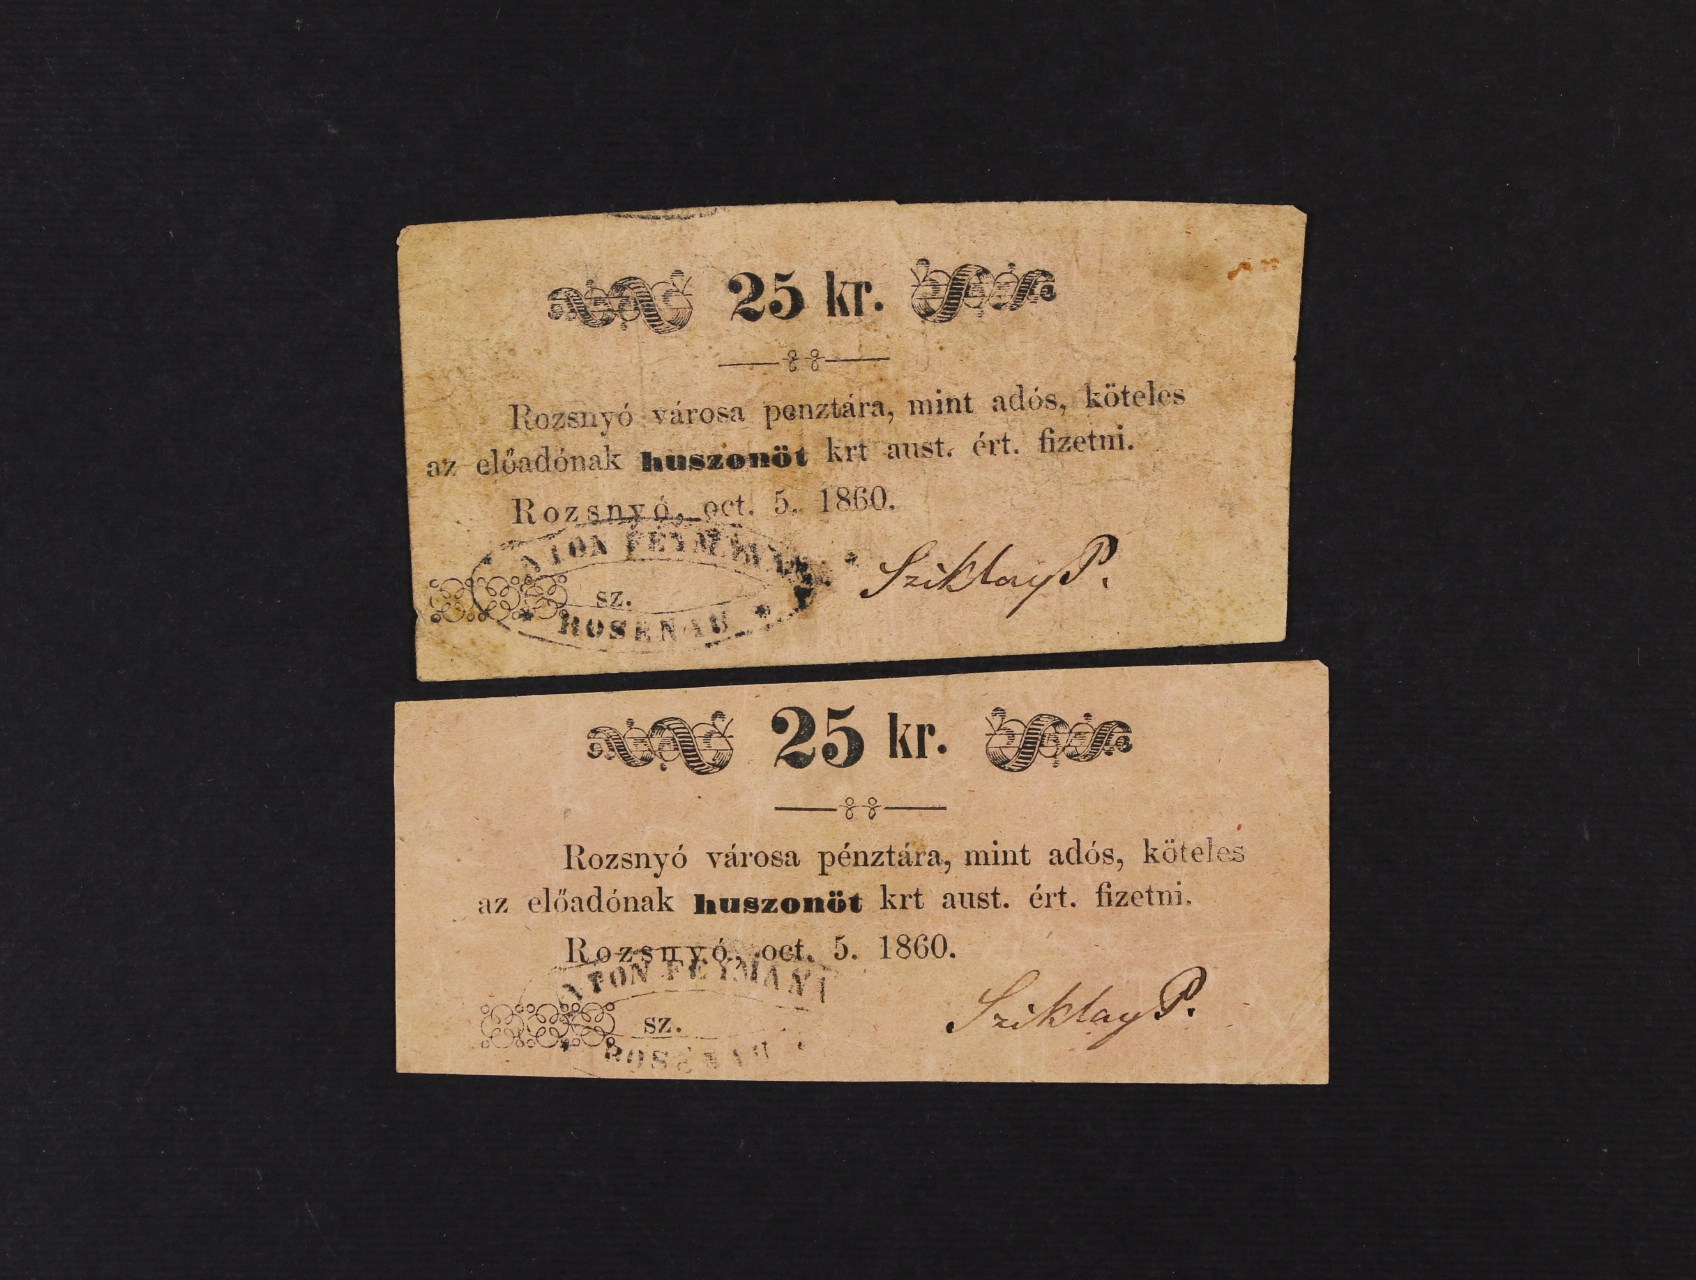 25 kr.
Rozsnyó városa penztára, mint adós, köteles
az előadónak huszonöt krt aust. ért. fizetni.
Rozsnyó, oct. 5. 1860.
sz.
ROSENAU
Sziklay P.
25 kr.
Rozsnyó városa pénztára, mint adós, köteles
az előadónak huszonöt krt aust. ért. fizetni.
Rozsnyó, oct. 5. 1860.
sz.
ROSENAU
Sziklay P.